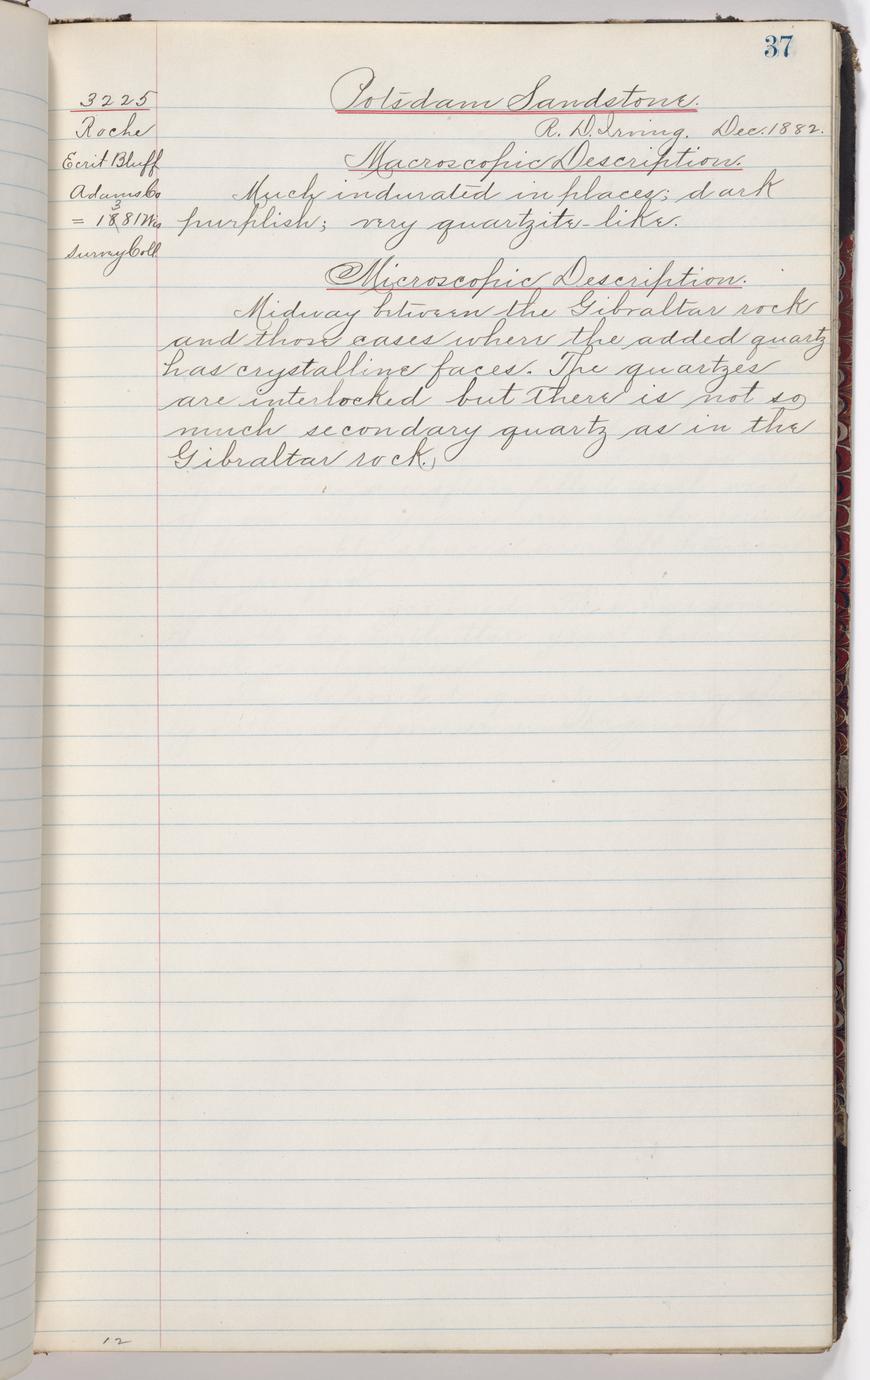 37
3225
Potsdam Sandstone.
Roche
R. D. Irving, Dec. 1882.
Ecrit Bluff
Macroscopic Description.
Adams Co
Much indurated in places; dark
3
= 1881 Wis
purplish; very quartzite-like.
Survey Coll
Microscopic Description.
Midway between the Gibraltar rock
and those cases where the added quartz
has crystalline faces. The quartzes
are interlocked but there is not so
much secondary quartz as in the
Gibraltar rock.
12